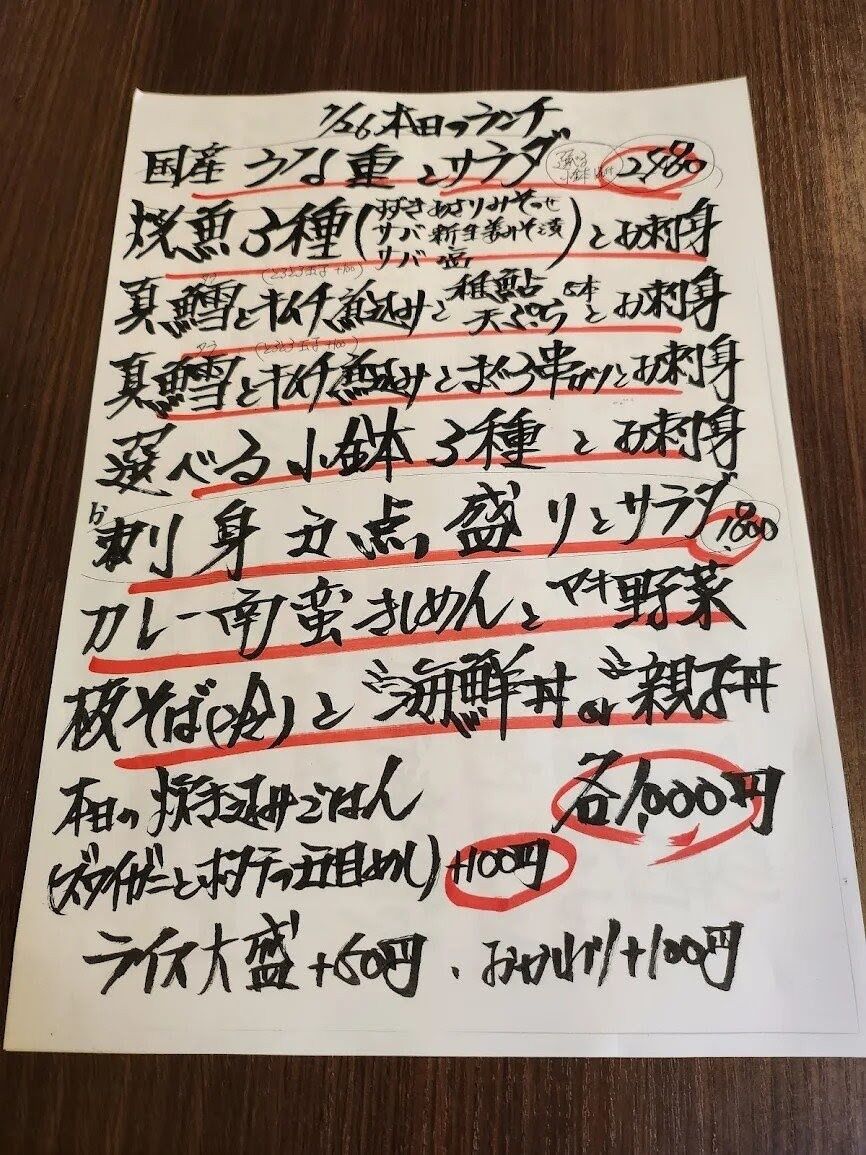 7/26 本日のランチ
国産うな重とサラダ 選べる小鉢 2,480
焼魚3種(
サバ新生姜みそ漬
サバ塩
)とお刺身
タラ (とろとろ玉子+100)
真鱈とキムチ煮込みと稚鮎天ぷら5本とお刺身
タラ (とろとろ玉子+100)
真鱈とキムチ煮込みとまぐろ串カツとお刺身
選べる小鉢3種とお刺身
お刺身五点盛りとサラダ 1,800
カレー南蛮きしめんとマキ野菜
板そば(冷)とミニ海鮮丼orミニ親子丼
本日の炊き込みごはん 各1,000円
(ズワイガニとホタテの五目めし) +100円
ライス大盛+50円、おかわり+100円